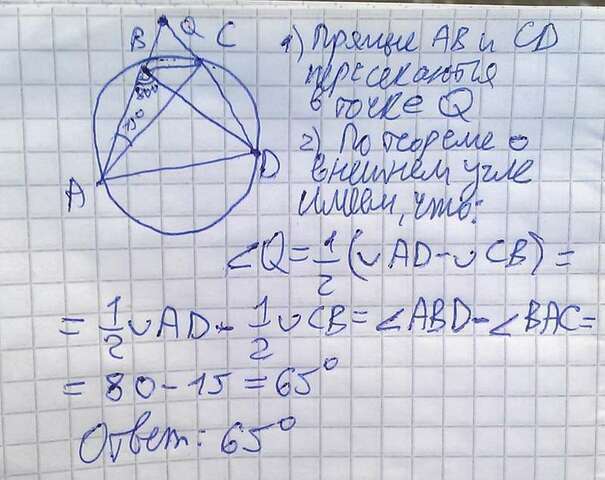 B Q C
80°
15°
A
D
1) Прямые AB и CD
пересекаются
в точке Q
2) По теореме о
внешнем угле
имеем, что:
∠Q = 1/2 (∪AD - ∪CB) =
= 1/2 ∪AD - 1/2 ∪CB = ∠ABD - ∠BAC =
= 80 - 15 = 65°
Ответ: 65°